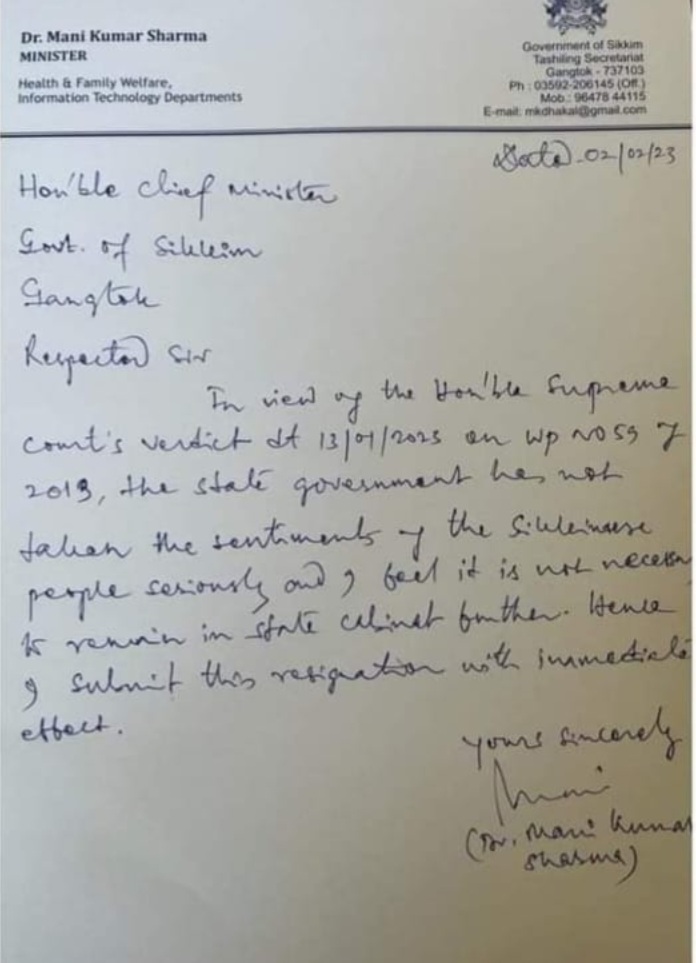 Dr. Mani Kumar Sharma
MINISTER
Health & Family Welfare,
Information Technology Departments
Government of Sikkim
Tashiling Secretariat
Gangtok - 737103
Ph : 03592-206145 (Off.)
Mob.: 96478 44115
E-mail: mkdhakal@gmail.com
Dated-02/02/23
Hon'ble Chief Minister
Govt. of Sikkim
Gangtok
Respected Sir
In view of the Hon'ble Supreme
court's verdict dt 13/01/2023 on WP NO 59 of
2013, the state government has not
taken the sentiments of the Sikkimese
people seriously and I feel it is not necessary
to remain in state cabinet further. Hence
I submit this resignation with immediate
effect.
Yours sincerely
Mani
(Dr. Mani Kumar
Sharma)